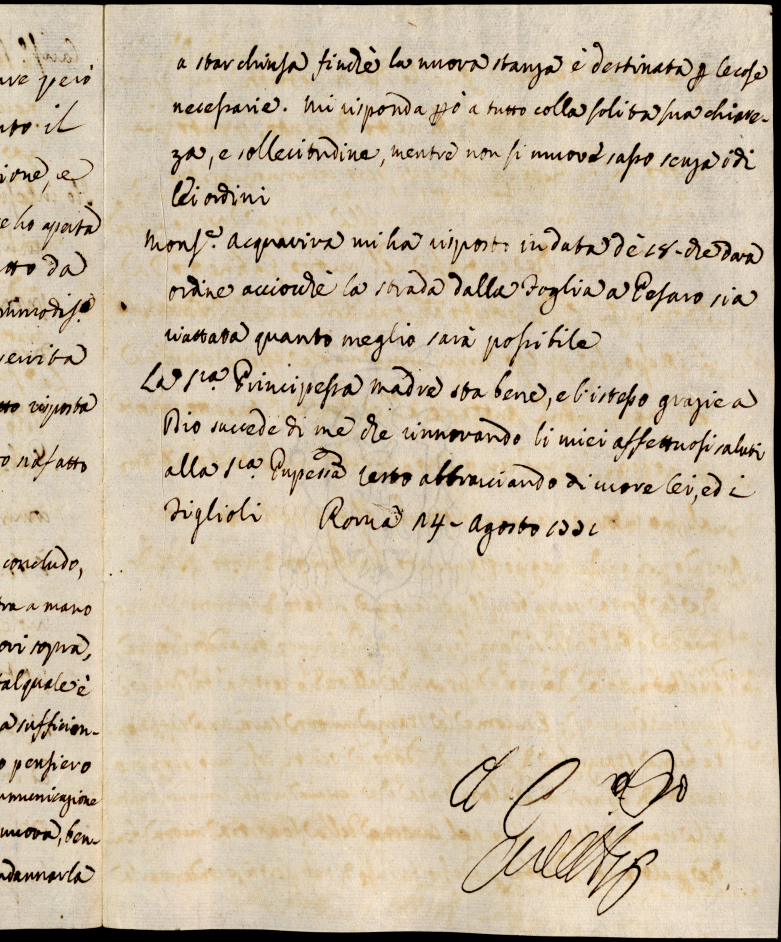 ure però
nto il
ione, e
e ho aperta
tto da
mmodis.e
servita
tto risposta
o rifatto
concludo,
tra a mano
ovi sopra,
tal quale è
a sufficien-
o pensiero
municazione
nuova, ben-
ndannarla
a star chiusa finchè la nuova stanza è destinata p le cose
necessarie. Mi risponda pò a tutto colla solita sua chiarez-
za, e sollecitudine, mentre non si muove sasso senza i di
lei ordini
Monsr.e Acquaviva mi ha risposto in data de 18 - che darà
ordine acciochè la strada dalla Foglia a Pesaro sia
riattata quanto meglio sarà possibile
La Sra Principessa madre sta bene, e l'istesso grazie a
Dio succede di me che rinnovando li miei affettuosi saluti
alla Sra Pnpessa resto abbracciando di cuore lei, ed i
Figlioli Roma 24 - Agosto